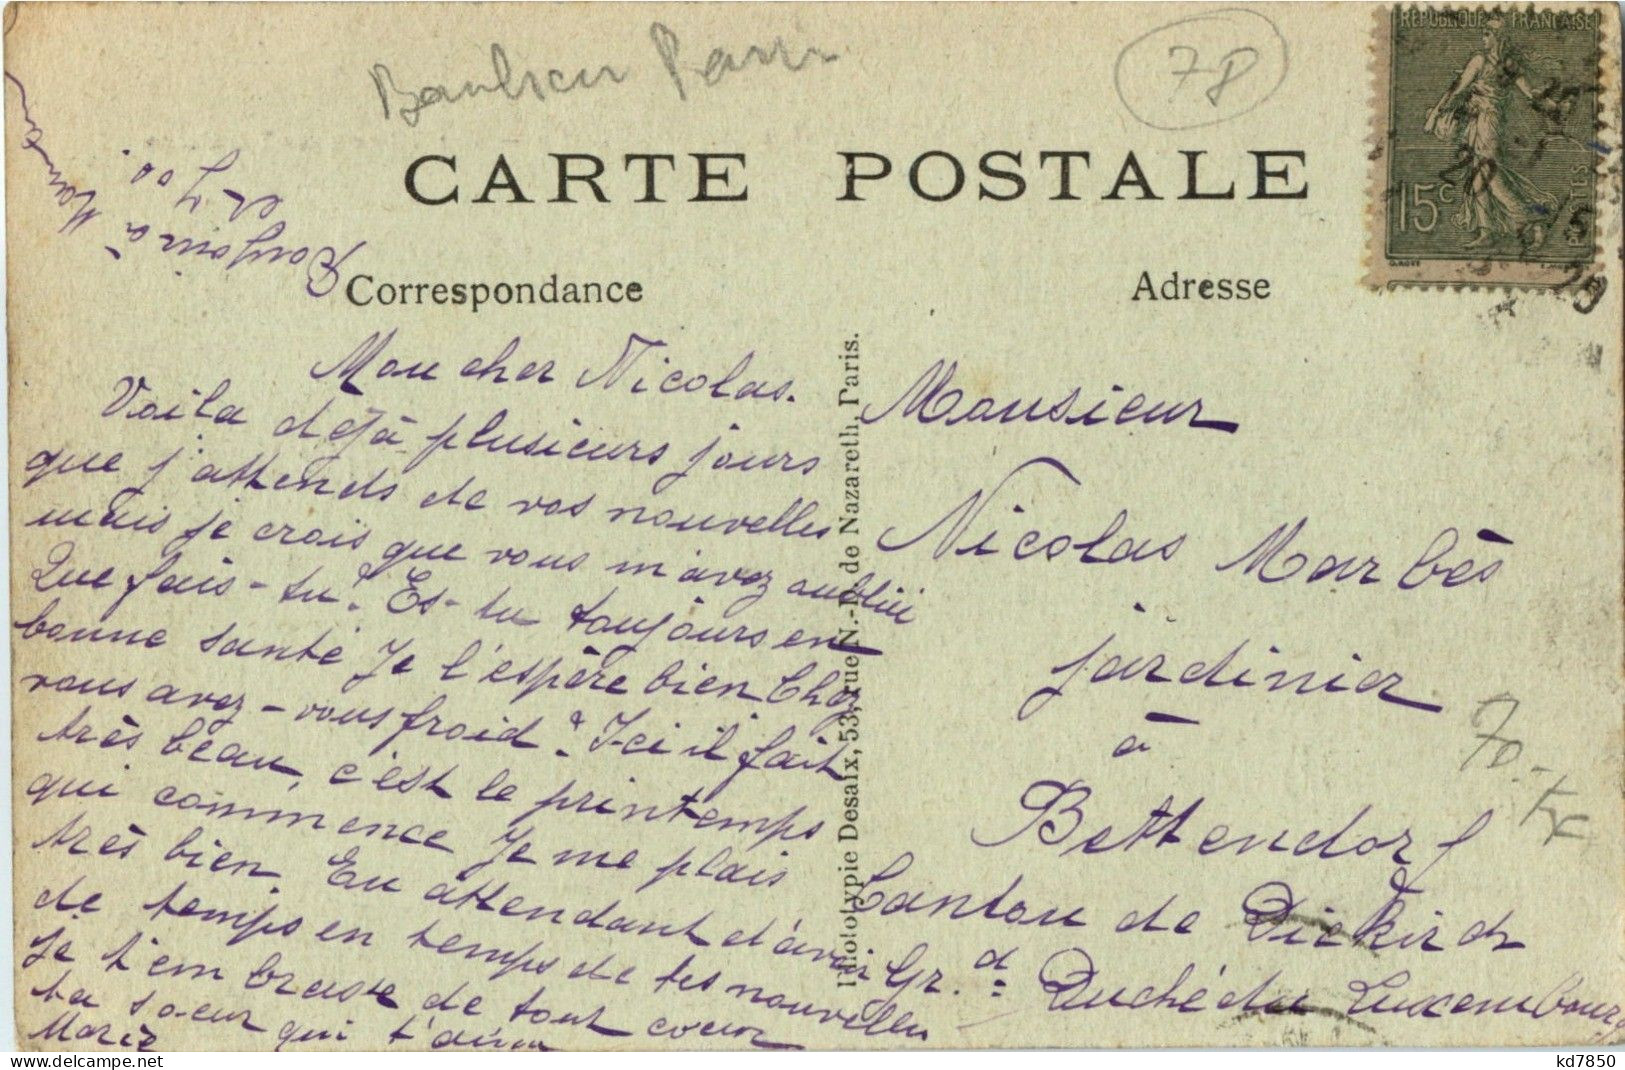 78
RÉPUBLIQUE FRANÇAISE
15c
POSTES
CARTE POSTALE
Correspondance
Adresse
Bonjour à Maman
et
Mon cher Nicolas.
Voila déjà plusieurs jours
que j'attends de vos nouvelles
mais je crois que vous m'avez oublié
Que fais-tu? Es-tu toujours en
bonne santé Je l'espère bien Chez
vous avez-vous froid? Ici il fait
très beau, c'est le printemps
qui commence Je me plais
très bien En attendant d'avoir
de temps en temps de tes nouvelles
Je t'embrasse de tout coeur
ta soeur qui t'aime
Marie
Phototypie Desaix, 53, rue N.-D. de Nazareth, Paris.
Monsieur
Nicolas Marbès
jardinier
à
Bettendorf
Canton de Diekirch
Gr.d Duché du Luxembourg
70.-
kd7850